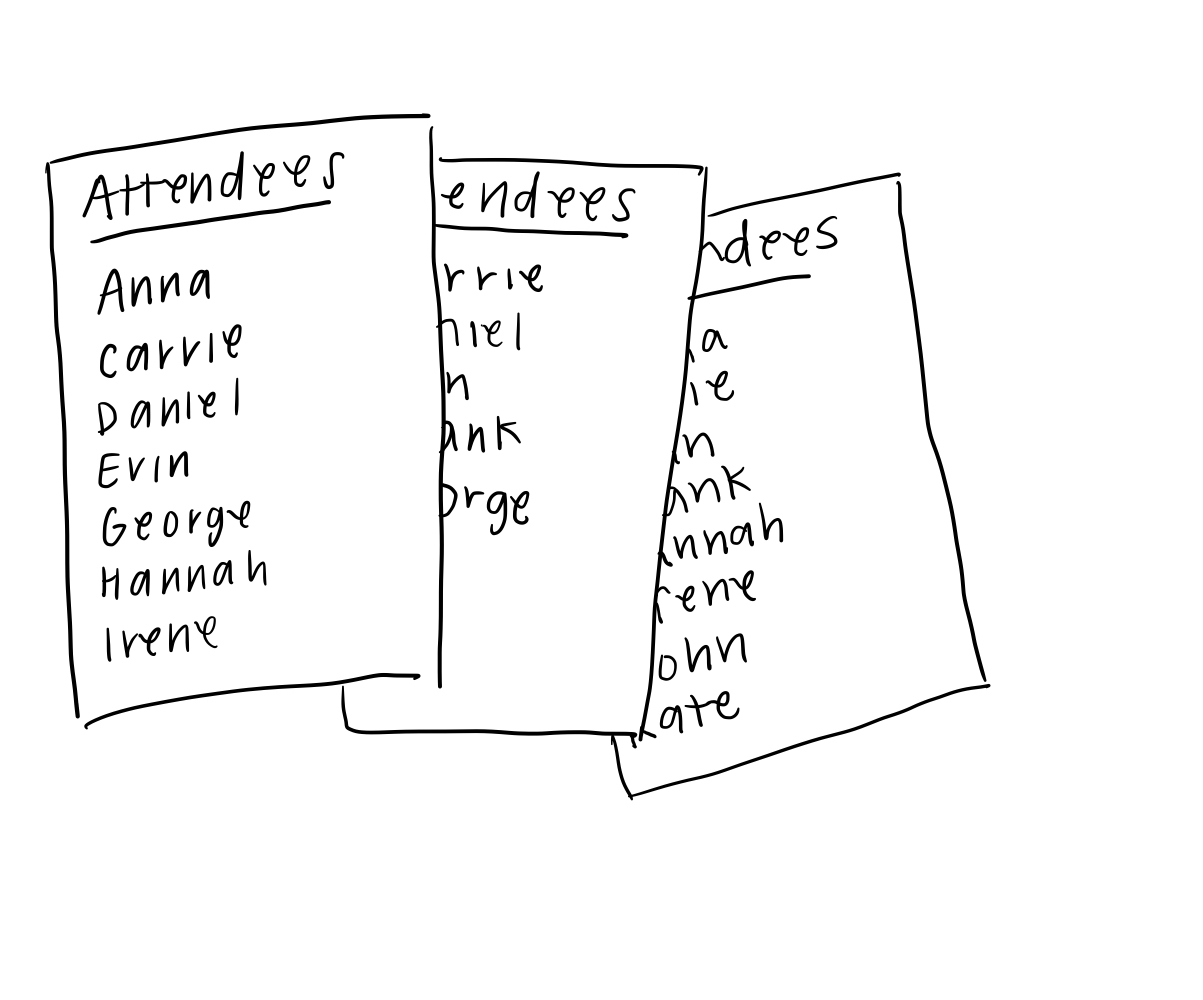 Attendees
Anna
Carrie
Daniel
Evin
George
Hannah
Irene
endees
rrie
niel
n
ank
orge
ndees
a
ie
in
ank
annah
rene
ohn
kate